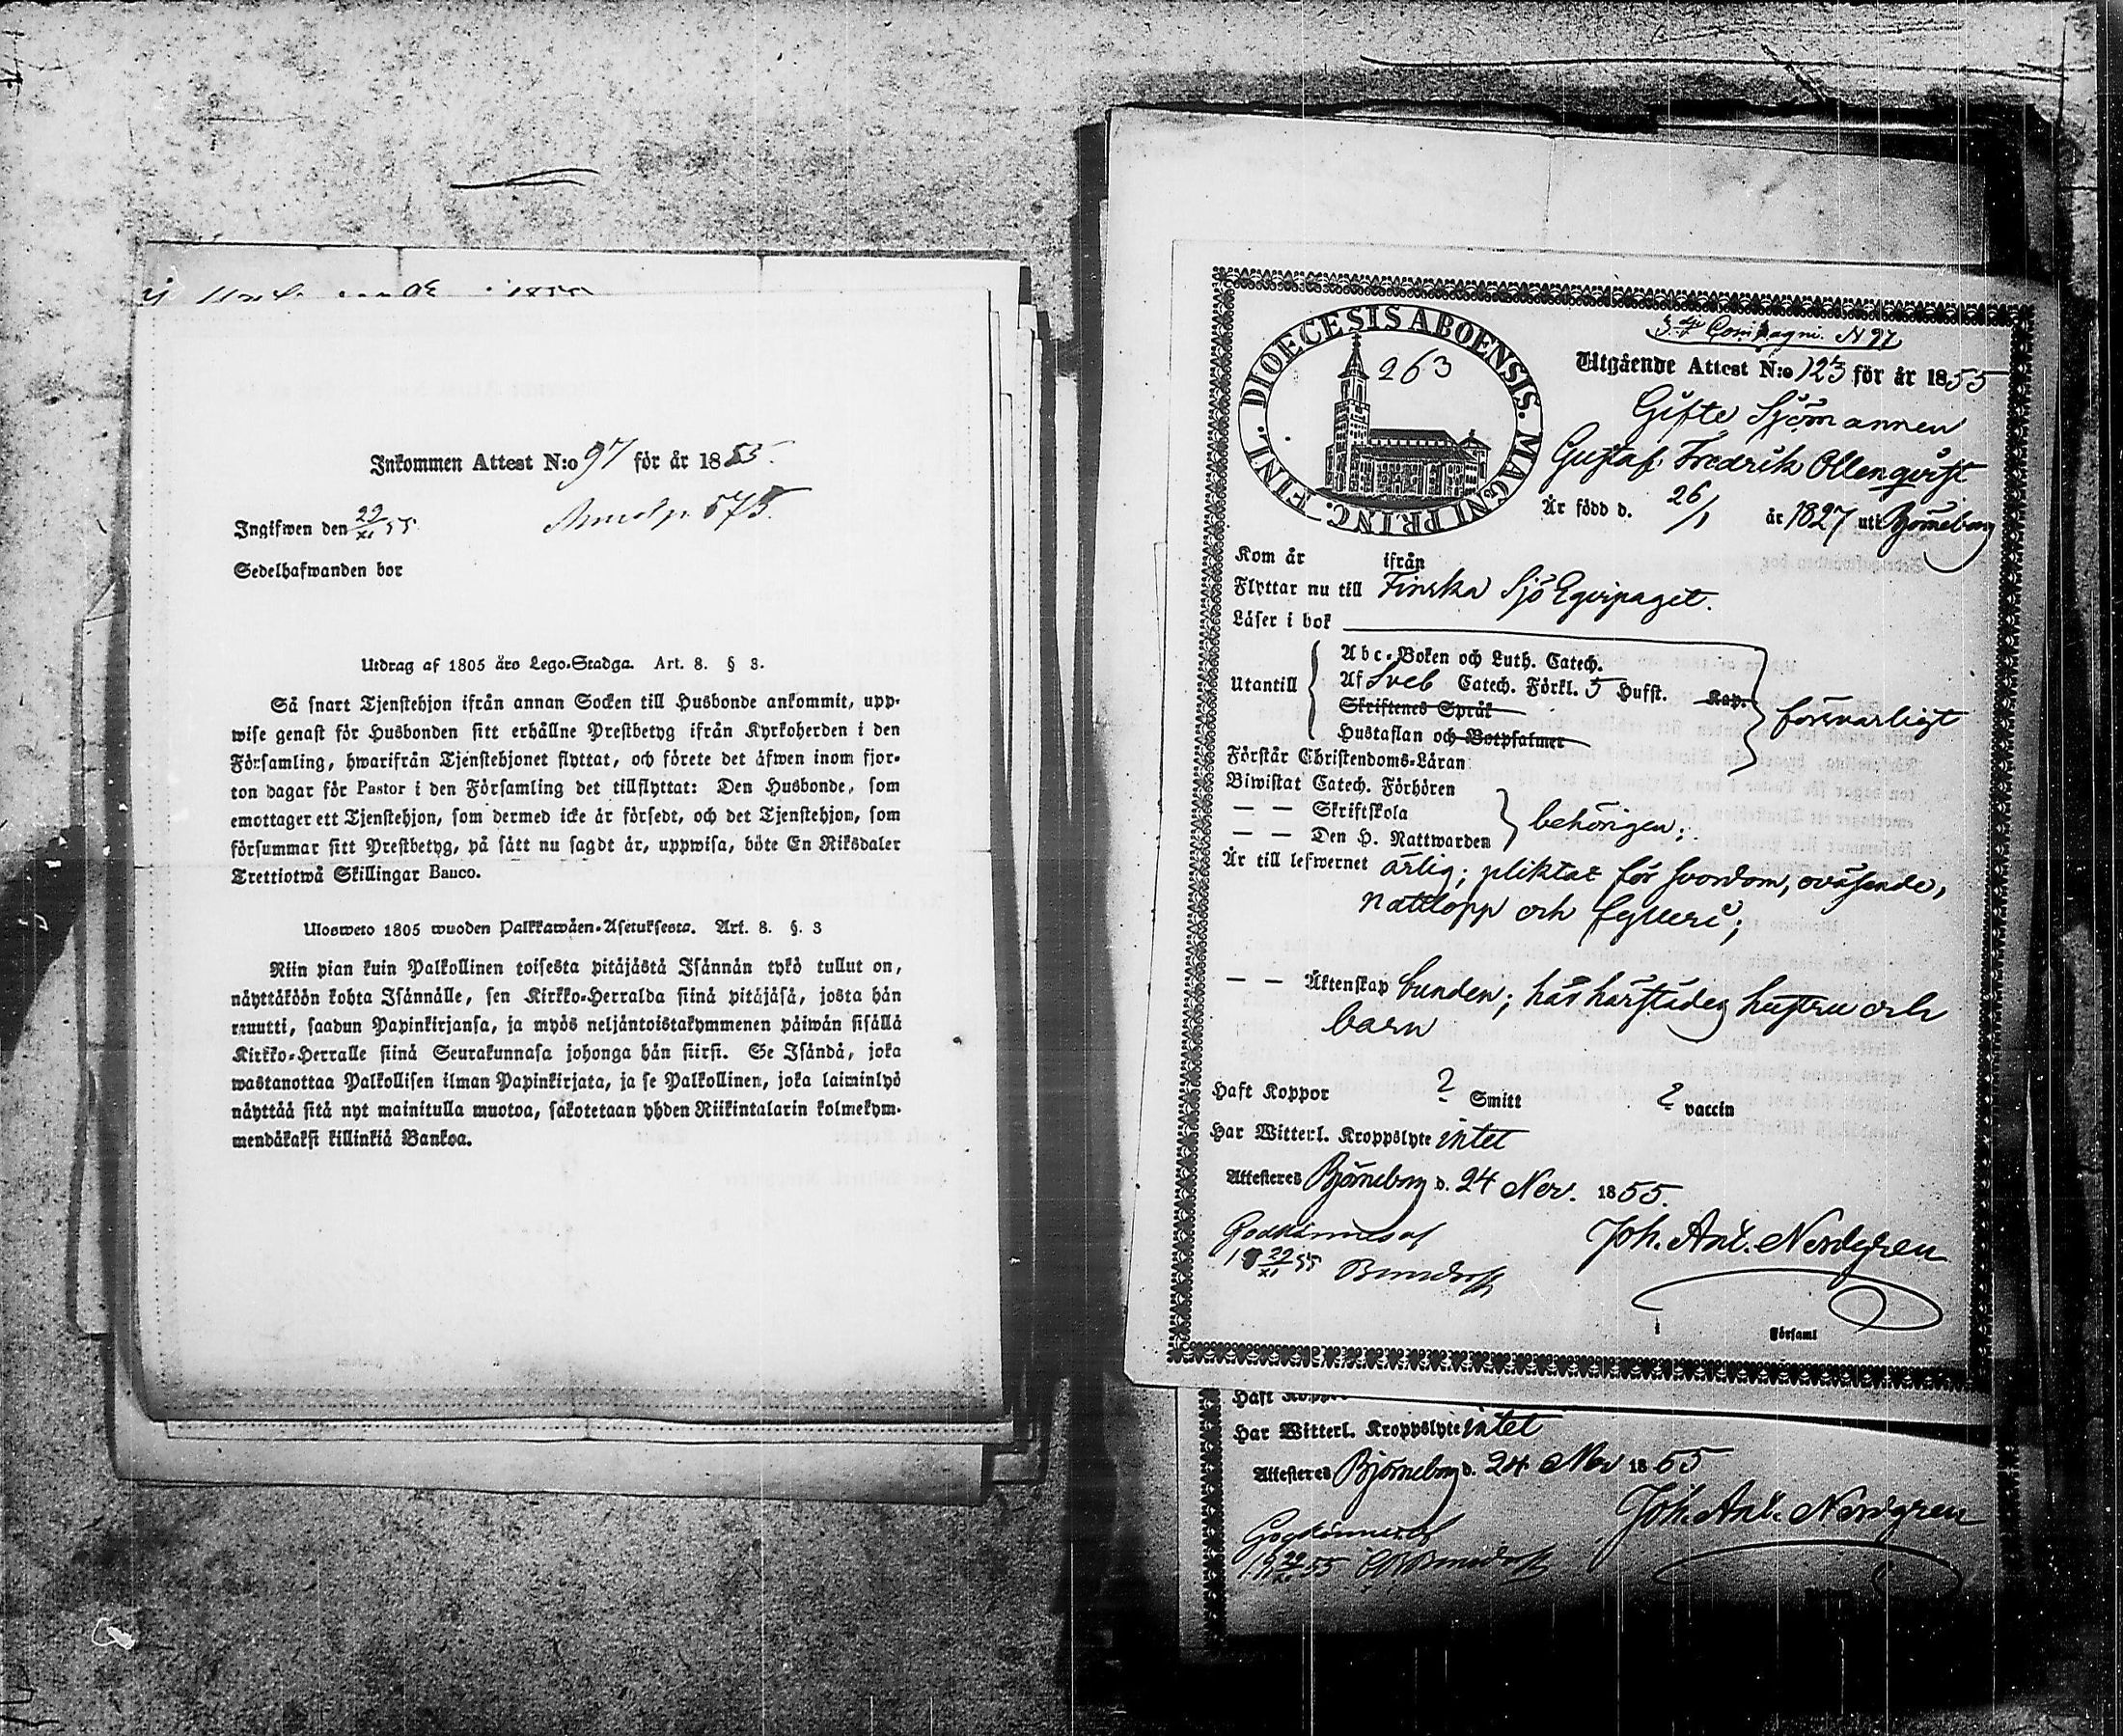 Inkommen Attest N:o 97 för år 1855.
Ingifwen den 29/XI 55
575
Sedelhafwanden bor
Utdrag af 1805 års Lego-Stadga. Art. 8. § 3.
Så snart Tjenstehjon ifrån annan Socken till Husbonde ankommit, upp-
wise genast för Husbonden sitt erhållne Prestbetyg ifrån Kyrkoherden i den
Församling, hwarifrån Tjenstehjonet flyttat, och förete det äfwen inom fjor-
ton dagar för Pastor i den Församling det tillflyttat: Den Husbonde, som
emottager ett Tjenstehjon, som dermed icke är försedt, och det Tjenstehjon, som
försummar sitt Prestbetyg, på sätt nu sagdt är, uppwisa, böte En Riksdaler
Trettiotwå Skillingar Banco.
Ulosweto 1805 wuoden Palkkawäen-Asetuksesta. Art. 8. §. 3
Niin pian kuin Palkollinen toisesta pitäjästä Isännän tykö tullut on,
näyttäköön kohta Isännälle, sen Kirkko-Herralda siinä pitäjäsä, josta hän
muutti, saadun Papinkirjansa, ja myös neljäntoistakymmenen päiwän sisällä
Kirkko-Herralle siinä Seurakunnasa johonga hän siirsi. Se Isändä, joka
wastanottaa Palkollisen ilman Papinkirjata, ja se Palkollinen, joka laiminlyö
näyttää sitä nyt mainitulla muotoa, sakotetaan yhden Riikintalarin kolmekym-
mendäkaksi killinkiä Bankoa.
DIOECESIS ABOENSIS. MAGNI PRINC. FINL.
263
3dje Compagni. N 97
Utgående Attest N:o 123 för år 1855
Gifte Sjömannen
Gustaf Fredrik Ollenqvist
Är född d. 26/1 år 1827 uti Björneborg
Kom år ifrån
Flyttar nu till Finska Sjö Eqvipaget.
Läser i bok
Utantill
Abc-Boken och Luth. Catech.
Af Sveb Catech. Förkl. 5 Hufst. Kap.
Skriftenes Språk
Hustaflan och Botpsalmer
försvarligt
Förstår Christendoms-Läran
Biwistat Catech. Förhören
— — Skriftskola
— — Den H. Nattwarden
behörigen;
Är till lefwernet ärlig; pliktat för svordom, oväsende,
nattlopp och fylleri;
— — Äktenskap bunden; har härstädes hustru och
barn
Haft Koppor ? Smitt ? vaccin
Har Witterl. Kroppslyte intet
Attesteres Björneborg d. 24 Nov. 1855.
Godkännes af
29/XI 55
Joh. Ant. Nordgren
i Församl
Haft Koppor
Har Witterl. Kroppslyte intet
Attesteres Björneborg d. 24 Nov 1855
Godkännes af
29/XI 55
Joh. Ant. Nordgren